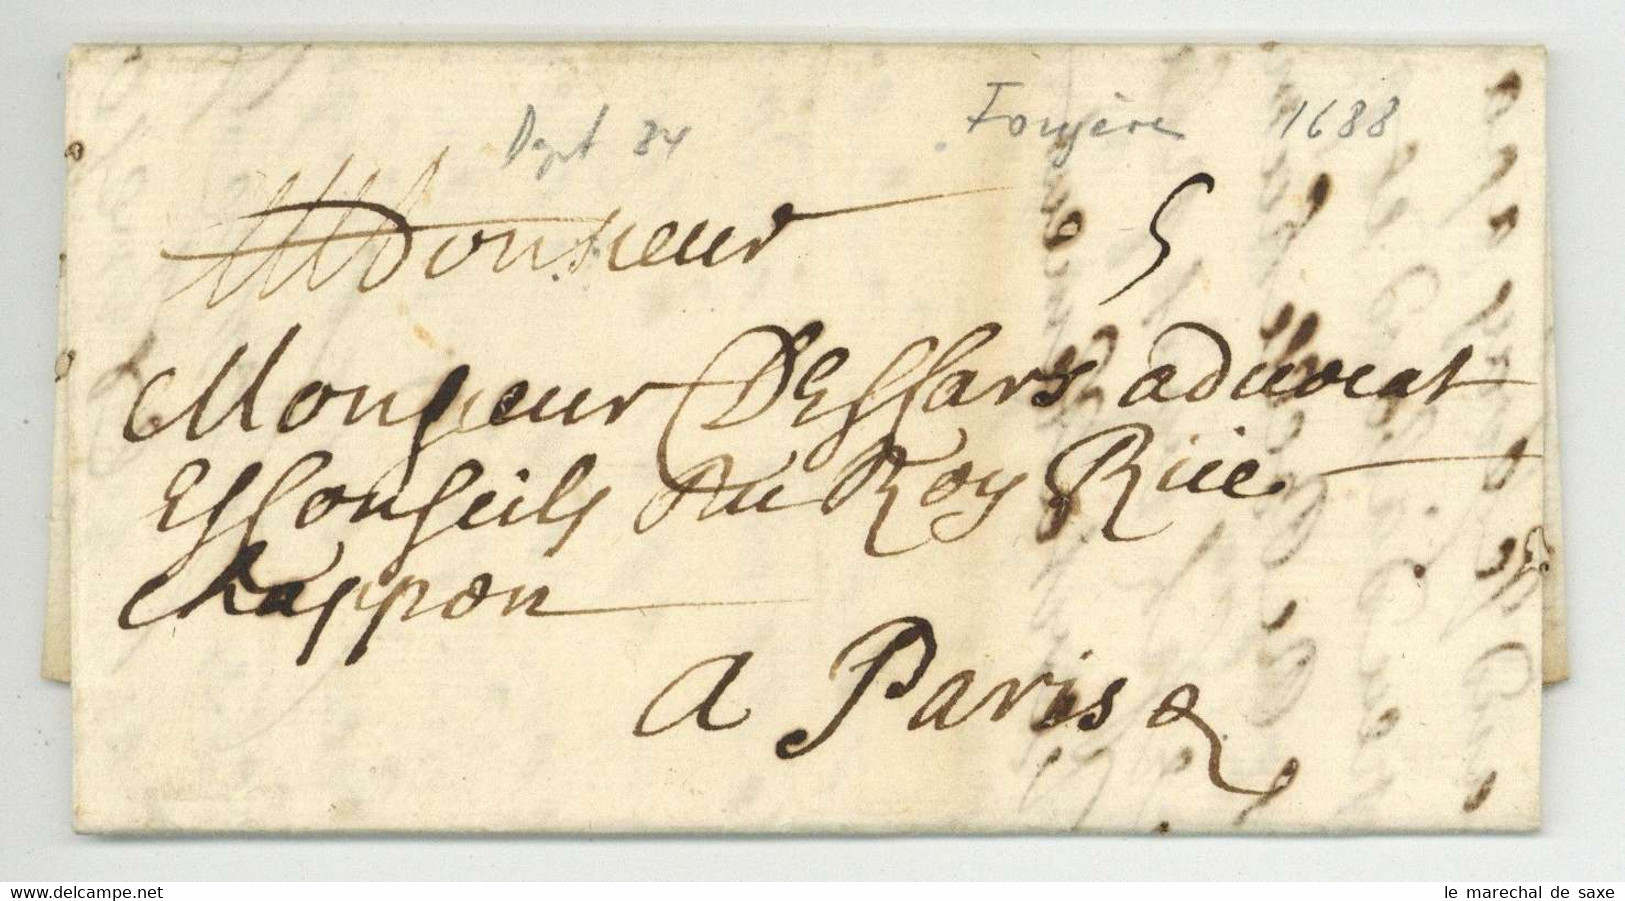 Dept 84 Fougère 1688
Monsieur 5
Monsieur DEssars aduocat
Es Conseils du Roy Rüe
chappon
a Paris
www.delcampe.net le marechal de saxe